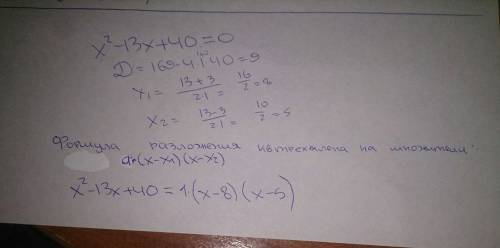 x²-13x+40=0
D=169-4·1·40=9
x₁= (13+3)/2·1 = 16/2=8
x₂= (13-3)/2·1 = 10/2=5
Формула разложения кв трехчлена на множители:
a·(x-x₁)(x-x₂)
x²-13x+40=1·(x-8)(x-5)